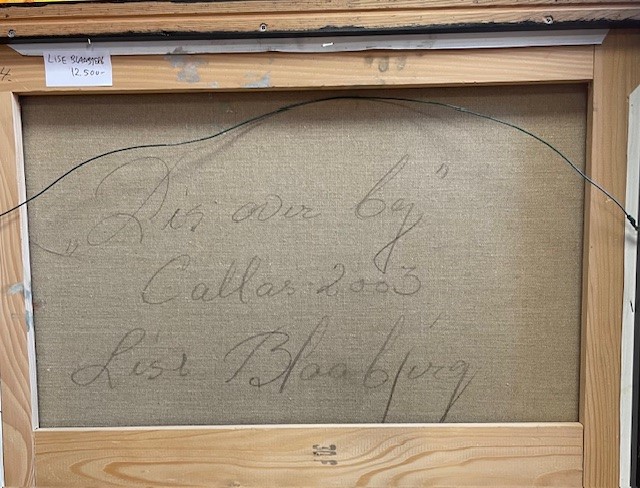 LISE BLAABJERG
12.500-
4.
„Dis over by"
Callas 2003
Lise Blaabjerg